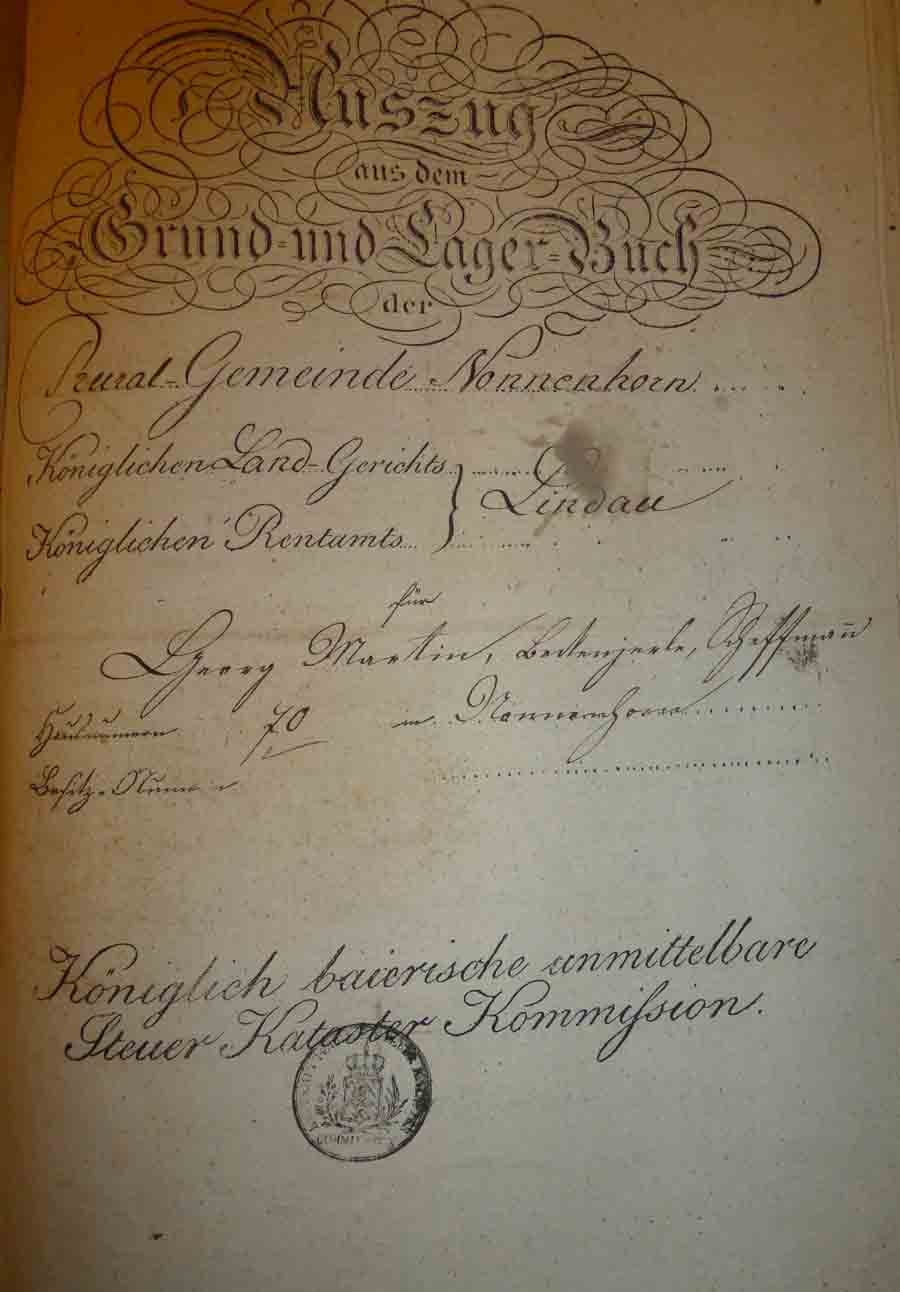 Auszug
aus dem
Grund- und Lager-Buch
der
Rural-Gemeinde Nonnenhorn
Königlichen Land-Gerichts
Lindau
Königlichen Rentamts
für
Georg Martin,
Hausnummern 70 in Nonnenhorn
Besitz-Numer
Königlich baierische unmittelbare
Steuer Kataster Kommißion.